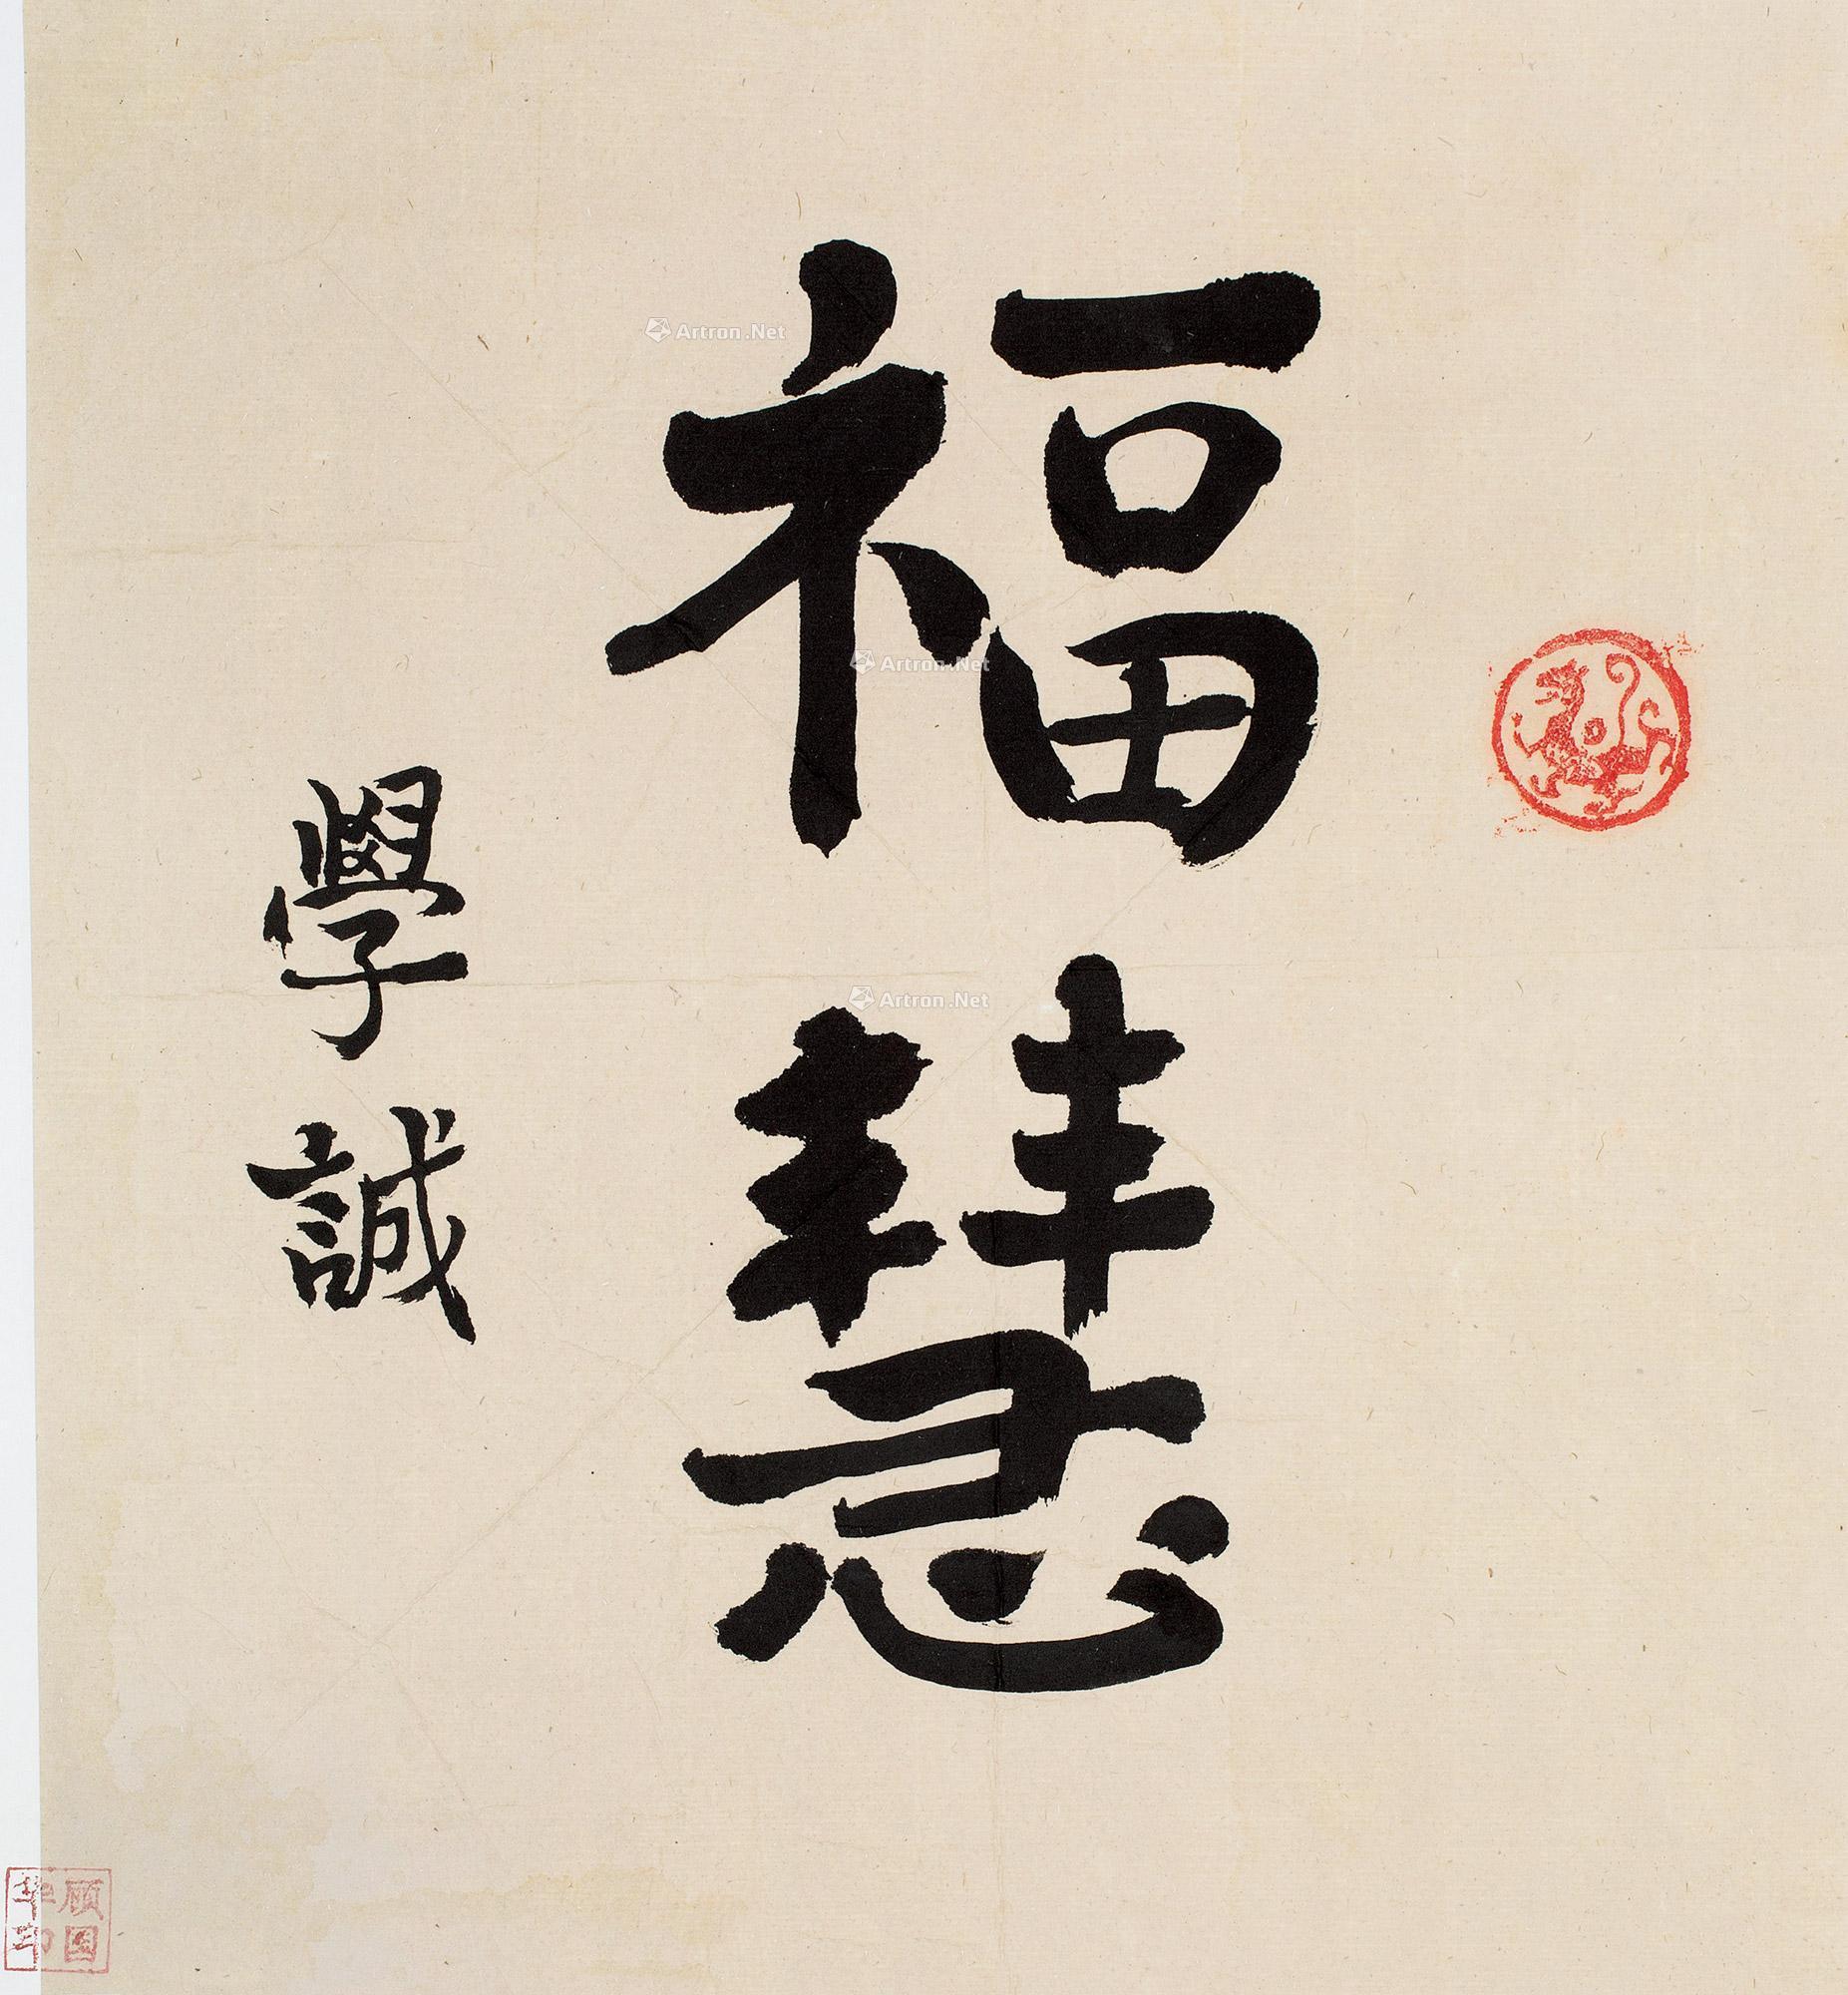 福慧
學誠
顾国华印
Artron.Net
Artron.Net
Artron.Net